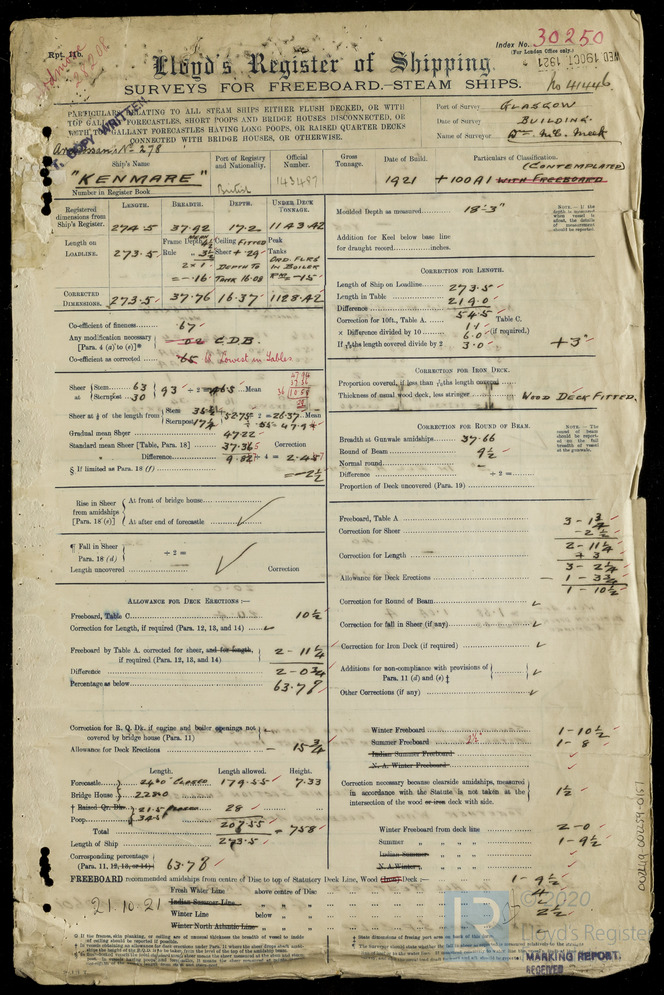 Rpt. 11b.
Index No. 30250
(For London Office only.)
WED 19 OCT 1921
No 41446
Lloyd's Register of Shipping.
SURVEYS FOR FREEBOARD.—STEAM SHIPS.
COPY WRITTEN
PARTICULARS RELATING TO ALL STEAM SHIPS EITHER FLUSH DECKED, OR WITH
TOP GALLANT FORECASTLES, SHORT POOPS AND BRIDGE HOUSES DISCONNECTED, OR
WITH TOPGALLANT FORECASTLES HAVING LONG POOPS, OR RAISED QUARTER DECKS
CONNECTED WITH BRIDGE HOUSES, OR OTHERWISE.
Port of Survey GLASGOW
Date of Survey BUILDING.
Name of Surveyor
No 278
Ship's Name
Port of Registry and Nationality.
Official Number.
Gross Tonnage.
Date of Build.
Particulars of Classification.
(CONTEMPLATED)
"KENMARE"
British
143497
1921
+100A1 WITH FREEBOARD
Number in Register Book
LENGTH. BREADTH. DEPTH. UNDER DECK TONNAGE.
Registered dimensions from Ship's Register. 274.5 37.92 17.2 1143.42
Length on LOADLINE. 273.5
Frame Depth
Rule
Ceiling FITTED
Sheer + .24
DEPTH TO TANK 16.08
Peak Tanks
ORD. FLRS
IN BOILER
CORRECTED DIMENSIONS. 273.5 37.76 16.37 1128.42
Co-efficient of fineness .67
Any modification necessary [Para. 4 (a) to (e)]* .02 C.D.B.
Co-efficient as corrected .65 Lowest in Tables
Sheer at Stem 63 Sternpost 30 93 ÷ 2 = 46.5 Mean
Sheer at ⅛ of the length from Stem 35½ Sternpost 17¼ 52.75 ÷ 2 = 26.37 Mean
÷ .55 = 47.94
Gradual mean Sheer 47.22
Standard mean Sheer [Table, Para. 18] 37.35 Correction
Difference 9.87 ÷ 4 = 2.45
§ If limited as Para. 18 (f) = -2½
Rise in Sheer from amidships [Para. 18 (e)]
At front of bridge house
At after end of forecastle
¶ Fall in Sheer Para. 18 (d) ÷ 2 =
Length uncovered Correction
ALLOWANCE FOR DECK ERECTIONS:—
Freeboard, Table C 10½
Correction for Length, if required (Para. 12, 13, and 14)
Freeboard by Table A. corrected for sheer, and for length, if required (Para. 12, 13, and 14) 2 - 11¼
Difference 2 - 0¾
Percentage as below 63.78
Correction for R. Q. Dk. if engine and boiler openings not covered by bridge house (Para. 11)
Allowance for Deck Erections - 15¾
Length. Length allowed. Height.
Forecastle 24.0 CLOSED 179.55 7.33
Bridge House 22.0
† Raised Qr. Dk. 21.5
Poop 34.5 28
Total 207.55 = .758
Length of Ship 273.5
Corresponding percentage (Para. 11, 12, 13, or 14) 63.78
Moulded Depth as measured 18'-3"
Addition for Keel below base line for draught record inches.
CORRECTION FOR LENGTH.
Length of Ship on Loadline 273.5
Length in Table 219.0
Difference 54.5
Correction for 10ft., Table A. 1.1 Table C.
× Difference divided by 10 6.0 (if required.)
If ⁶⁄₁₀ths length covered divide by 2 3.0 + 3"
CORRECTION FOR IRON DECK.
Proportion covered, if less than ⁷⁄₁₀ths length covered
Thickness of usual wood deck, less stringer WOOD DECK FITTED.
CORRECTION FOR ROUND OF BEAM.
Breadth at Gunwale amidships 37.66
Round of Beam 9½
Normal round
Difference ÷ 2 =
Proportion of Deck uncovered (Para. 19)
Freeboard, Table A 3 - 1¾
Correction for Sheer - 2½
2 - 11¼
Correction for Length + 3
3 - 2¼
Allowance for Deck Erections - 1 - 3¾
1 - 10½
Correction for Round of Beam
Correction for fall in Sheer (if any)
Correction for Iron Deck (if required)
Additions for non-compliance with provisions of Para. 11 (d) and (e) ‡
Other Corrections (if any)
Winter Freeboard 1 - 10½
Summer Freeboard 2½" 1 - 8
Indian Summer Freeboard
N. A. Winter Freeboard
Correction necessary because clearside amidships, measured in accordance with the Statute is not taken at the intersection of the wood or iron deck with side. 1½
Winter Freeboard from deck line 2 - 0
Summer " " " " 1 - 9½
Indian Summer " " " "
N. A. Winter " " " "
FREEBOARD recommended amidships from centre of Disc to top of Statutory Deck Line, Wood (Iron) Deck:— 1 - 9½
Fresh Water Line above centre of Disc
Indian Summer Line
Winter Line below 2½
Winter North Atlantic Line
21.10.21
© 2020
Lloyd's Register
MARKING REPORT.
RECEIVED
002249-002254-0151